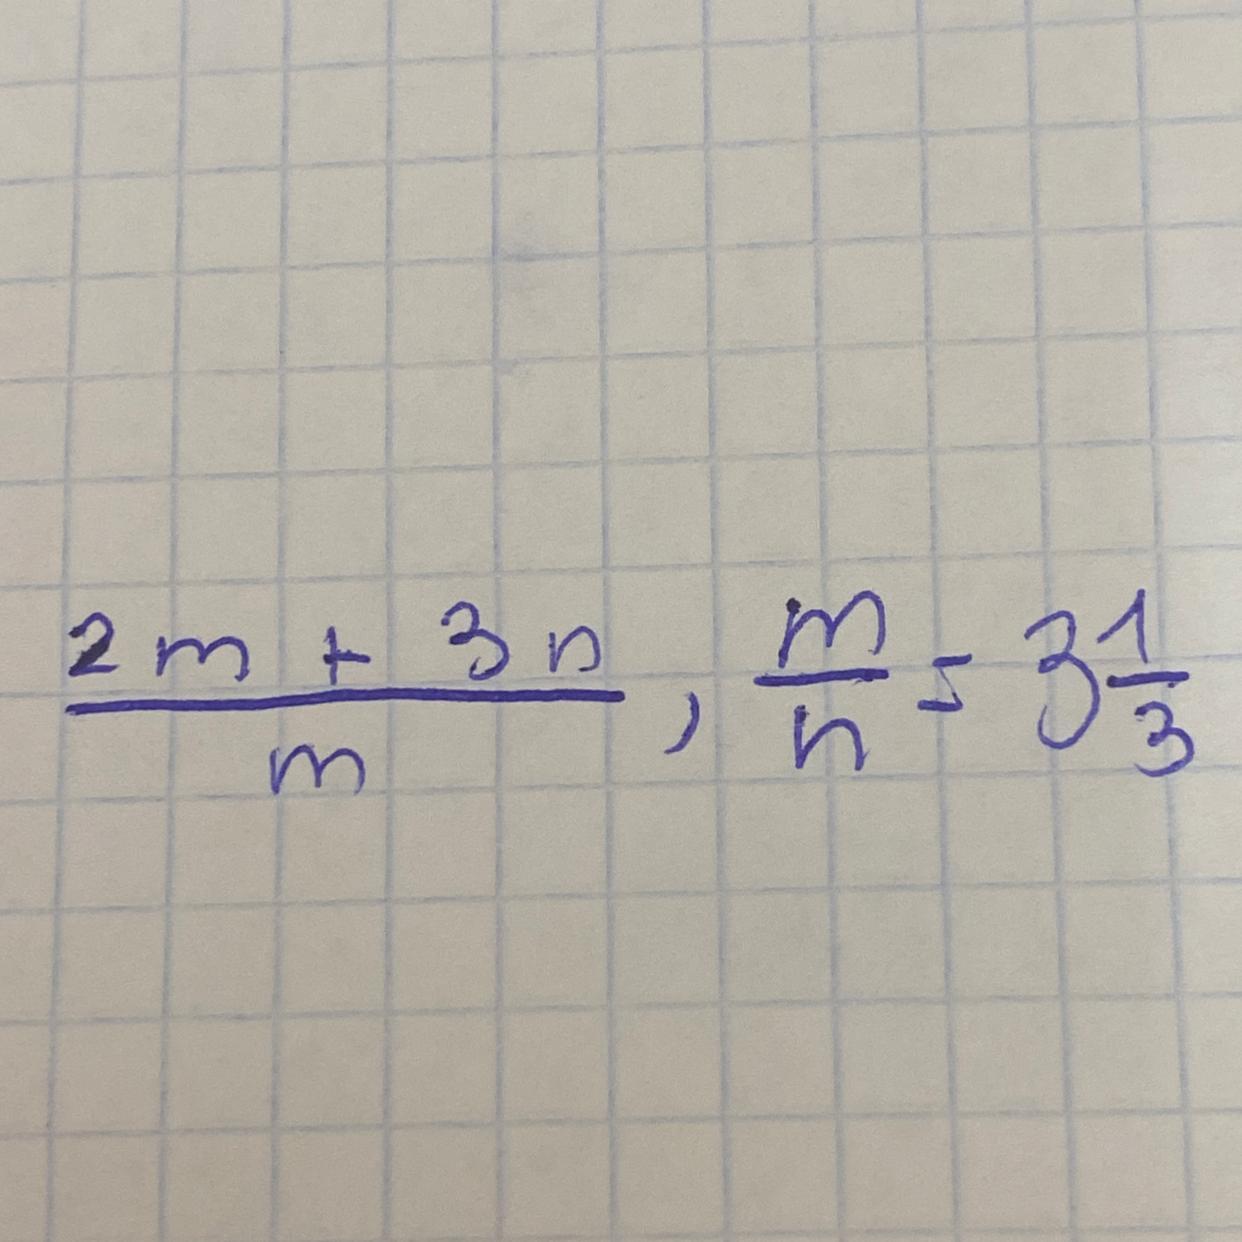 (2m + 3n)/m , m/n = 3 1/3